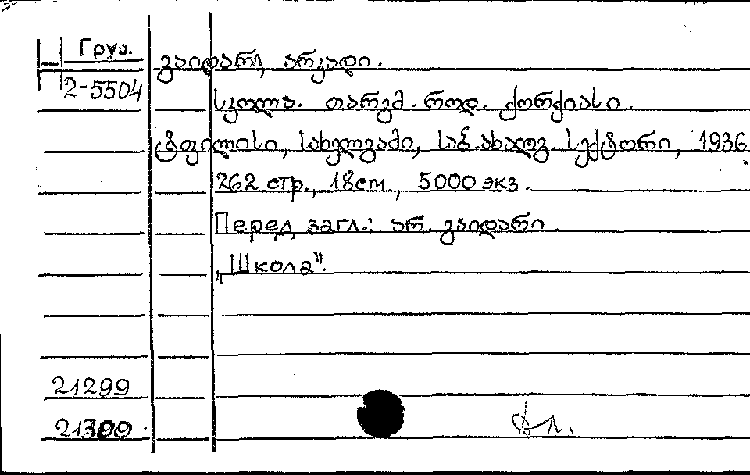 Груз.
2-5504
გაიდარი, არკადი.
სკოლა. თარგმ. როდ. ქორქიასი.
ტფილისი, სახელგამი, საბ. ახალგ. სექტორი, 1936
262 стр., 18см, 5000 экз.
Перед загл.: არ. გაიდარი
„Школа".
21299
21300